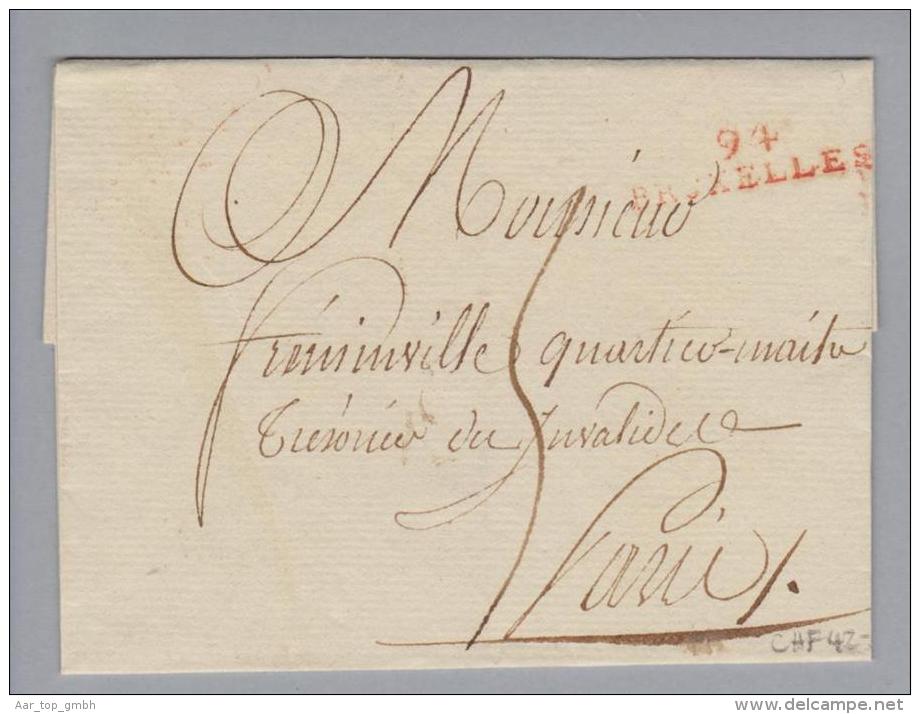 94
BRUXELLES
Monsieur
Fréminville quartier-maitre
Trésorier des Invalides
Paris.
CHF 42-
Aar_top_gmbh
www.delcampe.net